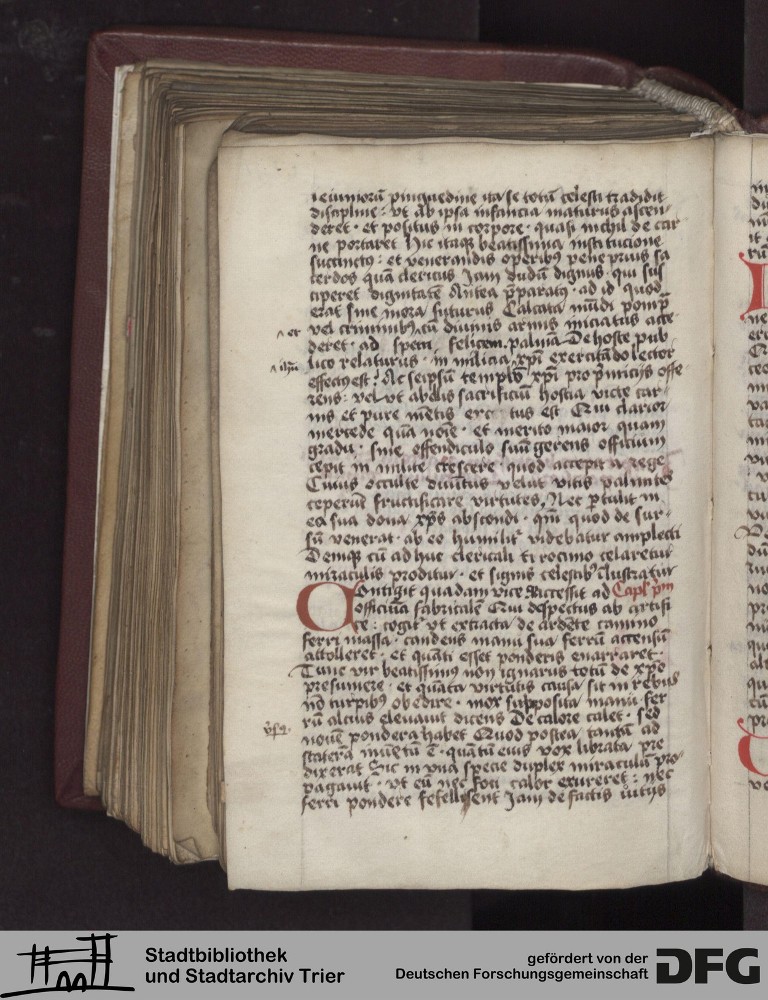 ieiuniorū pinguedine ita se totū celesti tradidit
discipline : vt ab ipsa infancia maturus ascen-
deret · et positus in corpore · quasi nichil de car
ne portaret Hic itaqȝ beatissima institucione
succinctus : et venerandis operibꝰ pene prius sa
cerdos quā clericus Jam dudū dignus · qui sus
ciperet dignitatē Antea p̄paratꝰ · ad id quod
erat sine mora futurus Calcata mūdi pomp̄
vel criminibꝰ cū diuinis armis iniciatus acce
deret · ad spem felicem palmā De hoste pub
lico relaturus · in milicia xp̄i exercitādo lector
effectꝰ est : Ac seipsū templo xp̄i pro primicijs offe
rens : velut abelis sacrificiū hostia victe car
nis et pure mētis tus est Qui clarior
mercede quā noīe · et merito maior quam
gradu · sine offendiculo suū gerens officium
cepit in milite crescere · quod accepit a rege
Cuius occulte diuitus velut vitis palmites
ceperūt fructificare virtutes, Nec ꝑtulit in
ea sua dona xp̄s abscondi · qm̄ quod de sur-
sū venerat · ab eo humilit̓ videbatur amplecti
Demqȝ cū adhuc clericali tirocinio celaretur
miraculis proditur · et signis celestibꝰ illustratur
Contigit quadam vice Accessit ad Capl̄ p̄m
officinā fabricalē Qui despectus ab artifi
ce : cogit̓ vt extracta de ardēte camino
ferri massa · candens manu sua ferrū accensū
attolleret · et quāti esset ponderis enarraret ·
Tunc vir beatissimꝰ non ignarus totū de xp̄o
presumere · et quāta virtutis causa sit in rebus
nō turpibꝰ obedire · mox supposita manu fer
rū alcius eleuauit dicens De calore calet · sed
nouē pondera habet Quod postea tantū ad
staterā inuētū ē · quātū eius vox librata pre
dixerat Sic in vna specie duplex miraculū pro-
pagauit · vt eū nec foti calor exureret : nec
ferri pondere fefellissent Jam de factis
Stadtbibliothek
und Stadtarchiv Trier
gefördert von der
Deutschen Forschungsgemeinschaft
DFG